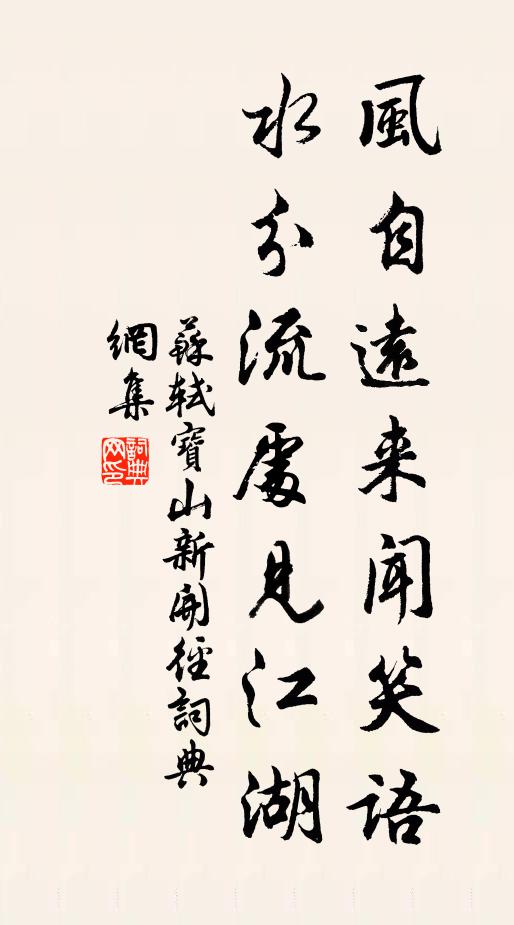 風自遠来聞笑語
水分流處見江湖
蘇軾寶山新開徑詞典
網集
詞典網印